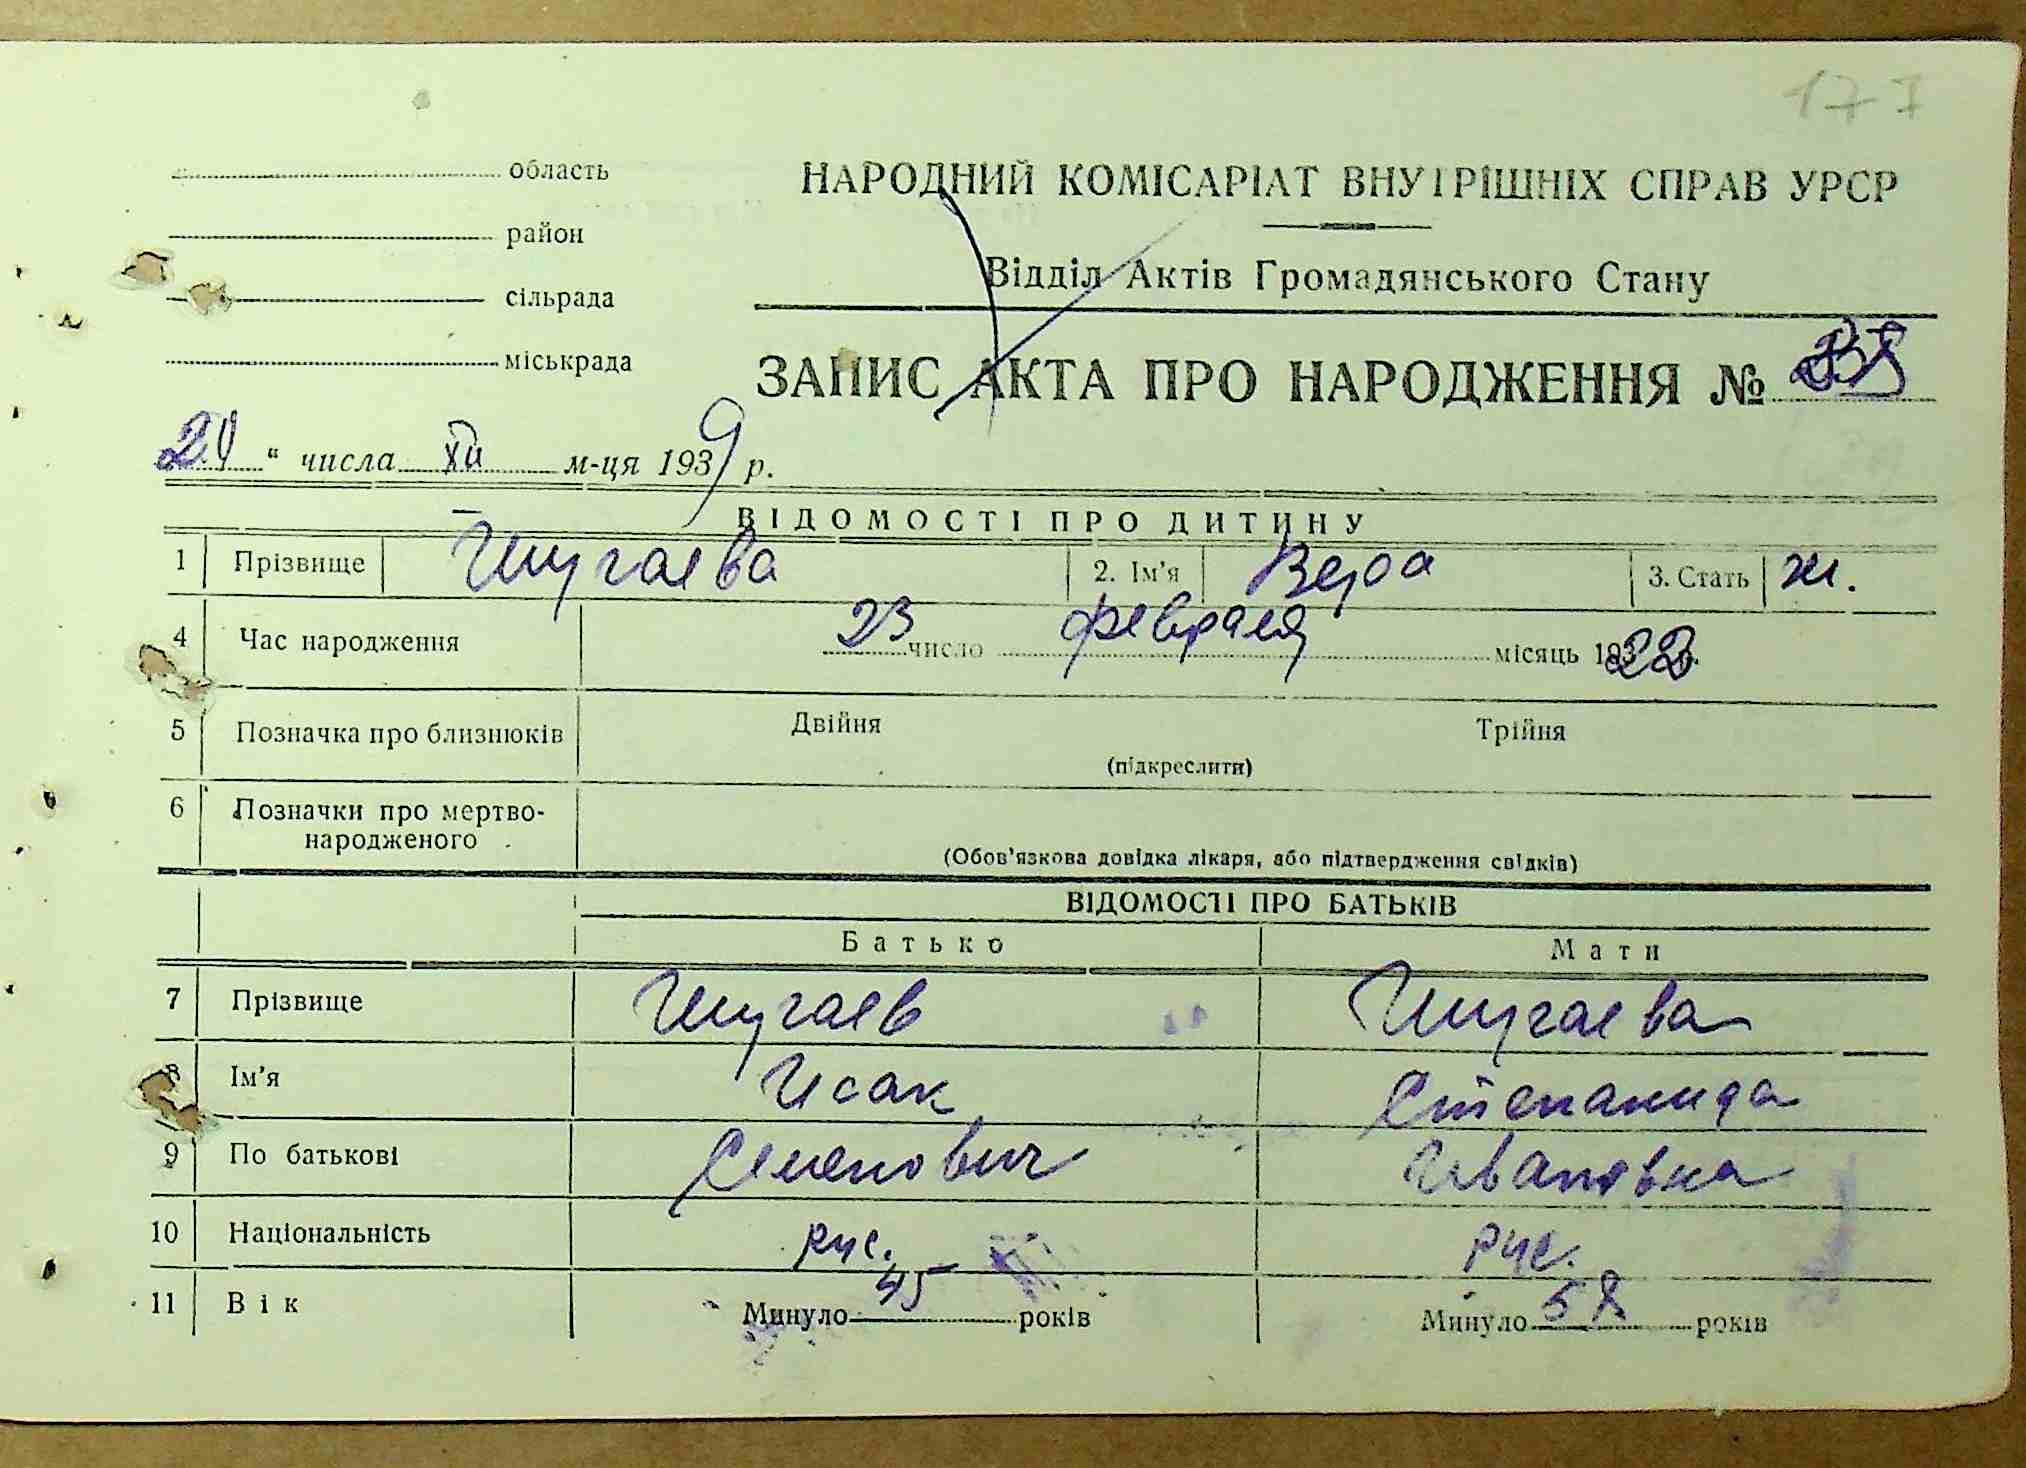 177
область
район
сільрада
міськрада
НАРОДНИЙ КОМІСАРІАТ ВНУТРІШНІХ СПРАВ УРСР
Відділ Актів Громадянського Стану
ЗАПИС АКТА ПРО НАРОДЖЕННЯ №
" числа XII м-ця 1939 р.
ВІДОМОСТІ ПРО ДИТИНУ
1 Прізвище Шугаева 2. Ім'я Вера 3. Стать ж.
4 Час народження 23 число февраля місяць 1922
5 Позначка про близнюків Двійня Трійня
(підкреслити)
6 Позначки про мертво-
народженого
(Обов'язкова довідка лікаря, або підтвердження свідків)
ВІДОМОСТІ ПРО БАТЬКІВ
Батько Мати
7 Прізвище Шугаев Шугаева
8 Ім'я Исак Степанида
9 По батькові Семенович Ивановна
10 Національність рус. рус.
11 Вік Минуло 45 років Минуло 58 років